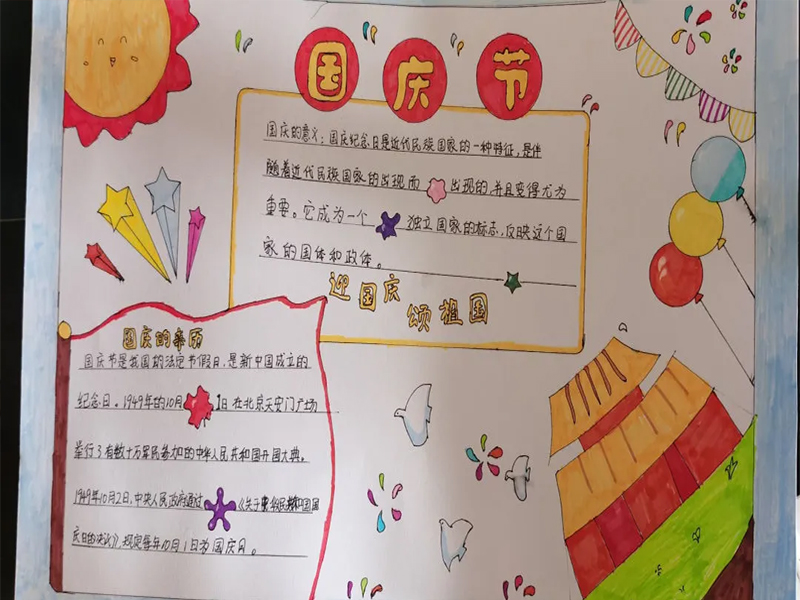 国庆节
国庆的意义：国庆纪念日是近代民族国家的一种特征，是伴
随着近代民族国家的出现而 出现的，并且变得尤为
重要。它成为一个 独立国家的标志，反映这个国
家的国体和政体。
迎国庆
颂祖国
国庆的来历
国庆节是我国的法定节假日，是新中国成立的
纪念日。1949年的10月 1日在北京天安门广场
举行了有数十万军民参加的中华人民共和国开国大典。
1949年10月2日，中央人民政府通过 《关于中华人民共和国国
庆日的决议》，规定每年10月1日为国庆日。